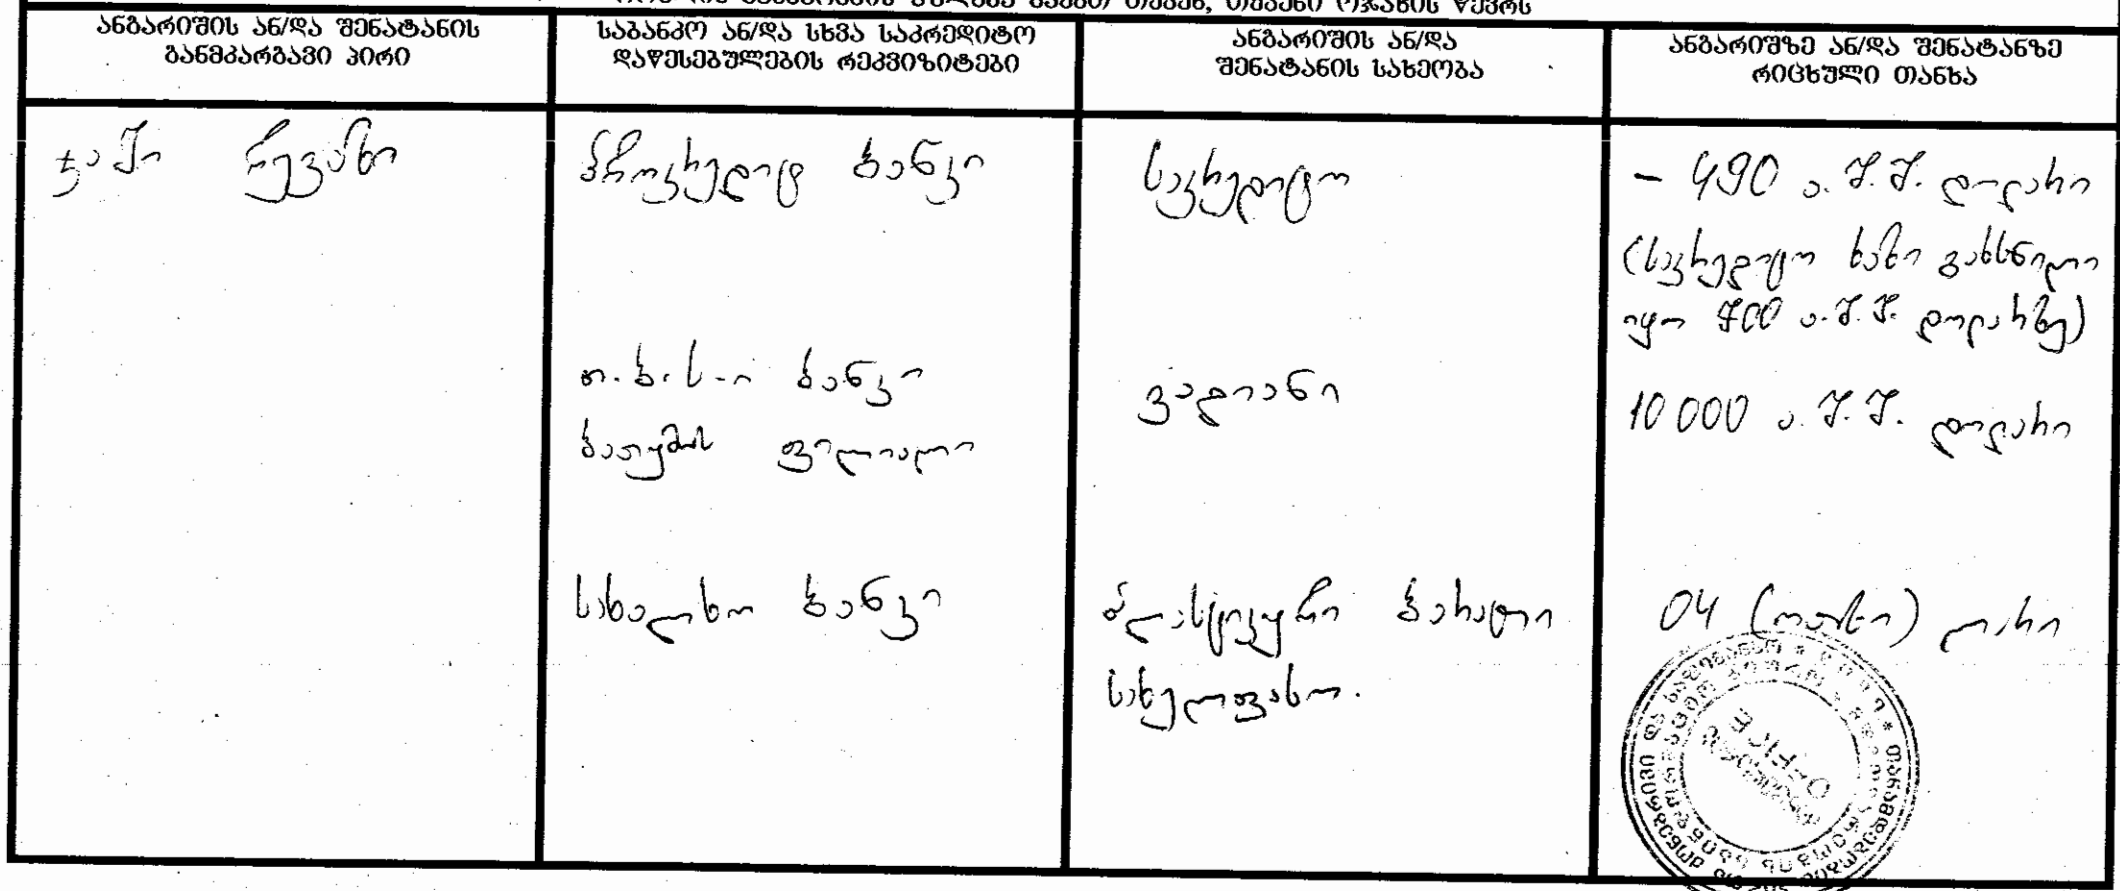 ანგარიშის ან/და შენატანის
განმკარგავი პირი
საბანკო ან/და სხვა საკრედიტო
დაწესებულების რეკვიზიტები
ანგარიშის ან/და
შენატანის სახეობა
ანგარიშზე ან/და შენატანზე
რიცხული თანხა
ჯაში რევაზი
პროკრედიტ ბანკი
საკრედიტო
- 490 ა.შ.შ. დოლარი
(საკრედიტო ხაზი გახსნილი
იყო 700 ა.შ.შ. დოლარზე)
თ.ბ.ს-ი ბანკი
ბათუმის ფილიალი
ვადიანი
10 000 ა.შ.შ. დოლარი
სახალხო ბანკი
პლასტიკური ბარათი
სახელფასო.
04 (ოთხი) ლარი